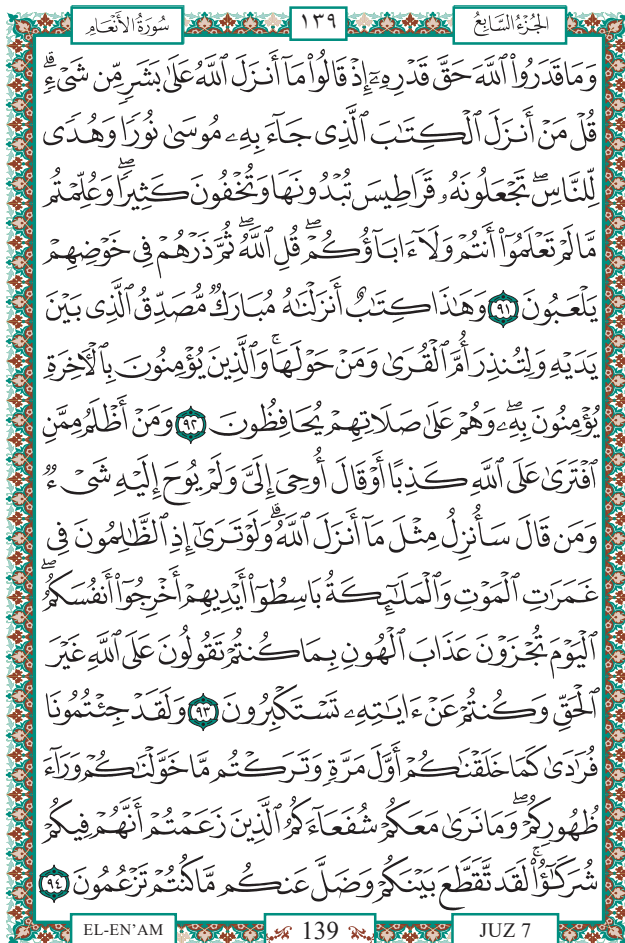 سُورَةُ الْأَنْعَامِ
١٣٩
الْجُزْءُ السَّابِعُ
وَمَا قَدَرُوا۟ ٱللَّهَ حَقَّ قَدْرِهِۦٓ إِذْ قَالُوا۟ مَآ أَنزَلَ ٱللَّهُ عَلَىٰ بَشَرٍ مِّن شَىْءٍ ۗ
قُلْ مَنْ أَنزَلَ ٱلْكِتَٰبَ ٱلَّذِى جَآءَ بِهِۦ مُوسَىٰ نُورًا وَهُدًى
لِّلنَّاسِ ۖ تَجْعَلُونَهُۥ قَرَاطِيسَ تُبْدُونَهَا وَتُخْفُونَ كَثِيرًا ۖ وَعُلِّمْتُم
مَّا لَمْ تَعْلَمُوٓا۟ أَنتُمْ وَلَآ ءَابَآؤُكُمْ ۖ قُلِ ٱللَّهُ ۖ ثُمَّ ذَرْهُمْ فِى خَوْضِهِمْ
يَلْعَبُونَ ٩١ وَهَٰذَا كِتَٰبٌ أَنزَلْنَٰهُ مُبَارَكٌ مُّصَدِّقُ ٱلَّذِى بَيْنَ
يَدَيْهِ وَلِتُنذِرَ أُمَّ ٱلْقُرَىٰ وَمَنْ حَوْلَهَا ۚ وَٱلَّذِينَ يُؤْمِنُونَ بِٱلْءَاخِرَةِ
يُؤْمِنُونَ بِهِۦ ۖ وَهُمْ عَلَىٰ صَلَاتِهِمْ يُحَافِظُونَ ٩٢ وَمَنْ أَظْلَمُ مِمَّنِ
ٱفْتَرَىٰ عَلَى ٱللَّهِ كَذِبًا أَوْ قَالَ أُوحِىَ إِلَىَّ وَلَمْ يُوحَ إِلَيْهِ شَىْءٌ
وَمَن قَالَ سَأُنزِلُ مِثْلَ مَآ أَنزَلَ ٱللَّهُ ۗ وَلَوْ تَرَىٰٓ إِذِ ٱلظَّٰلِمُونَ فِى
غَمَرَٰتِ ٱلْمَوْتِ وَٱلْمَلَٰٓئِكَةُ بَاسِطُوٓا۟ أَيْدِيهِمْ أَخْرِجُوٓا۟ أَنفُسَكُمُ ۖ
ٱلْيَوْمَ تُجْزَوْنَ عَذَابَ ٱلْهُونِ بِمَا كُنتُمْ تَقُولُونَ عَلَى ٱللَّهِ غَيْرَ
ٱلْحَقِّ وَكُنتُمْ عَنْ ءَايَٰتِهِۦ تَسْتَكْبِرُونَ ٩٣ وَلَقَدْ جِئْتُمُونَا
فُرَٰدَىٰ كَمَا خَلَقْنَٰكُمْ أَوَّلَ مَرَّةٍ وَتَرَكْتُم مَّا خَوَّلْنَٰكُمْ وَرَآءَ
ظُهُورِكُمْ ۖ وَمَا نَرَىٰ مَعَكُمْ شُفَعَآءَكُمُ ٱلَّذِينَ زَعَمْتُمْ أَنَّهُمْ فِيكُمْ
شُرَكَٰٓؤُا۟ ۚ لَقَد تَّقَطَّعَ بَيْنَكُمْ وَضَلَّ عَنكُم مَّا كُنتُمْ تَزْعُمُونَ ٩٤
EL-EN’AM
139
JUZ 7